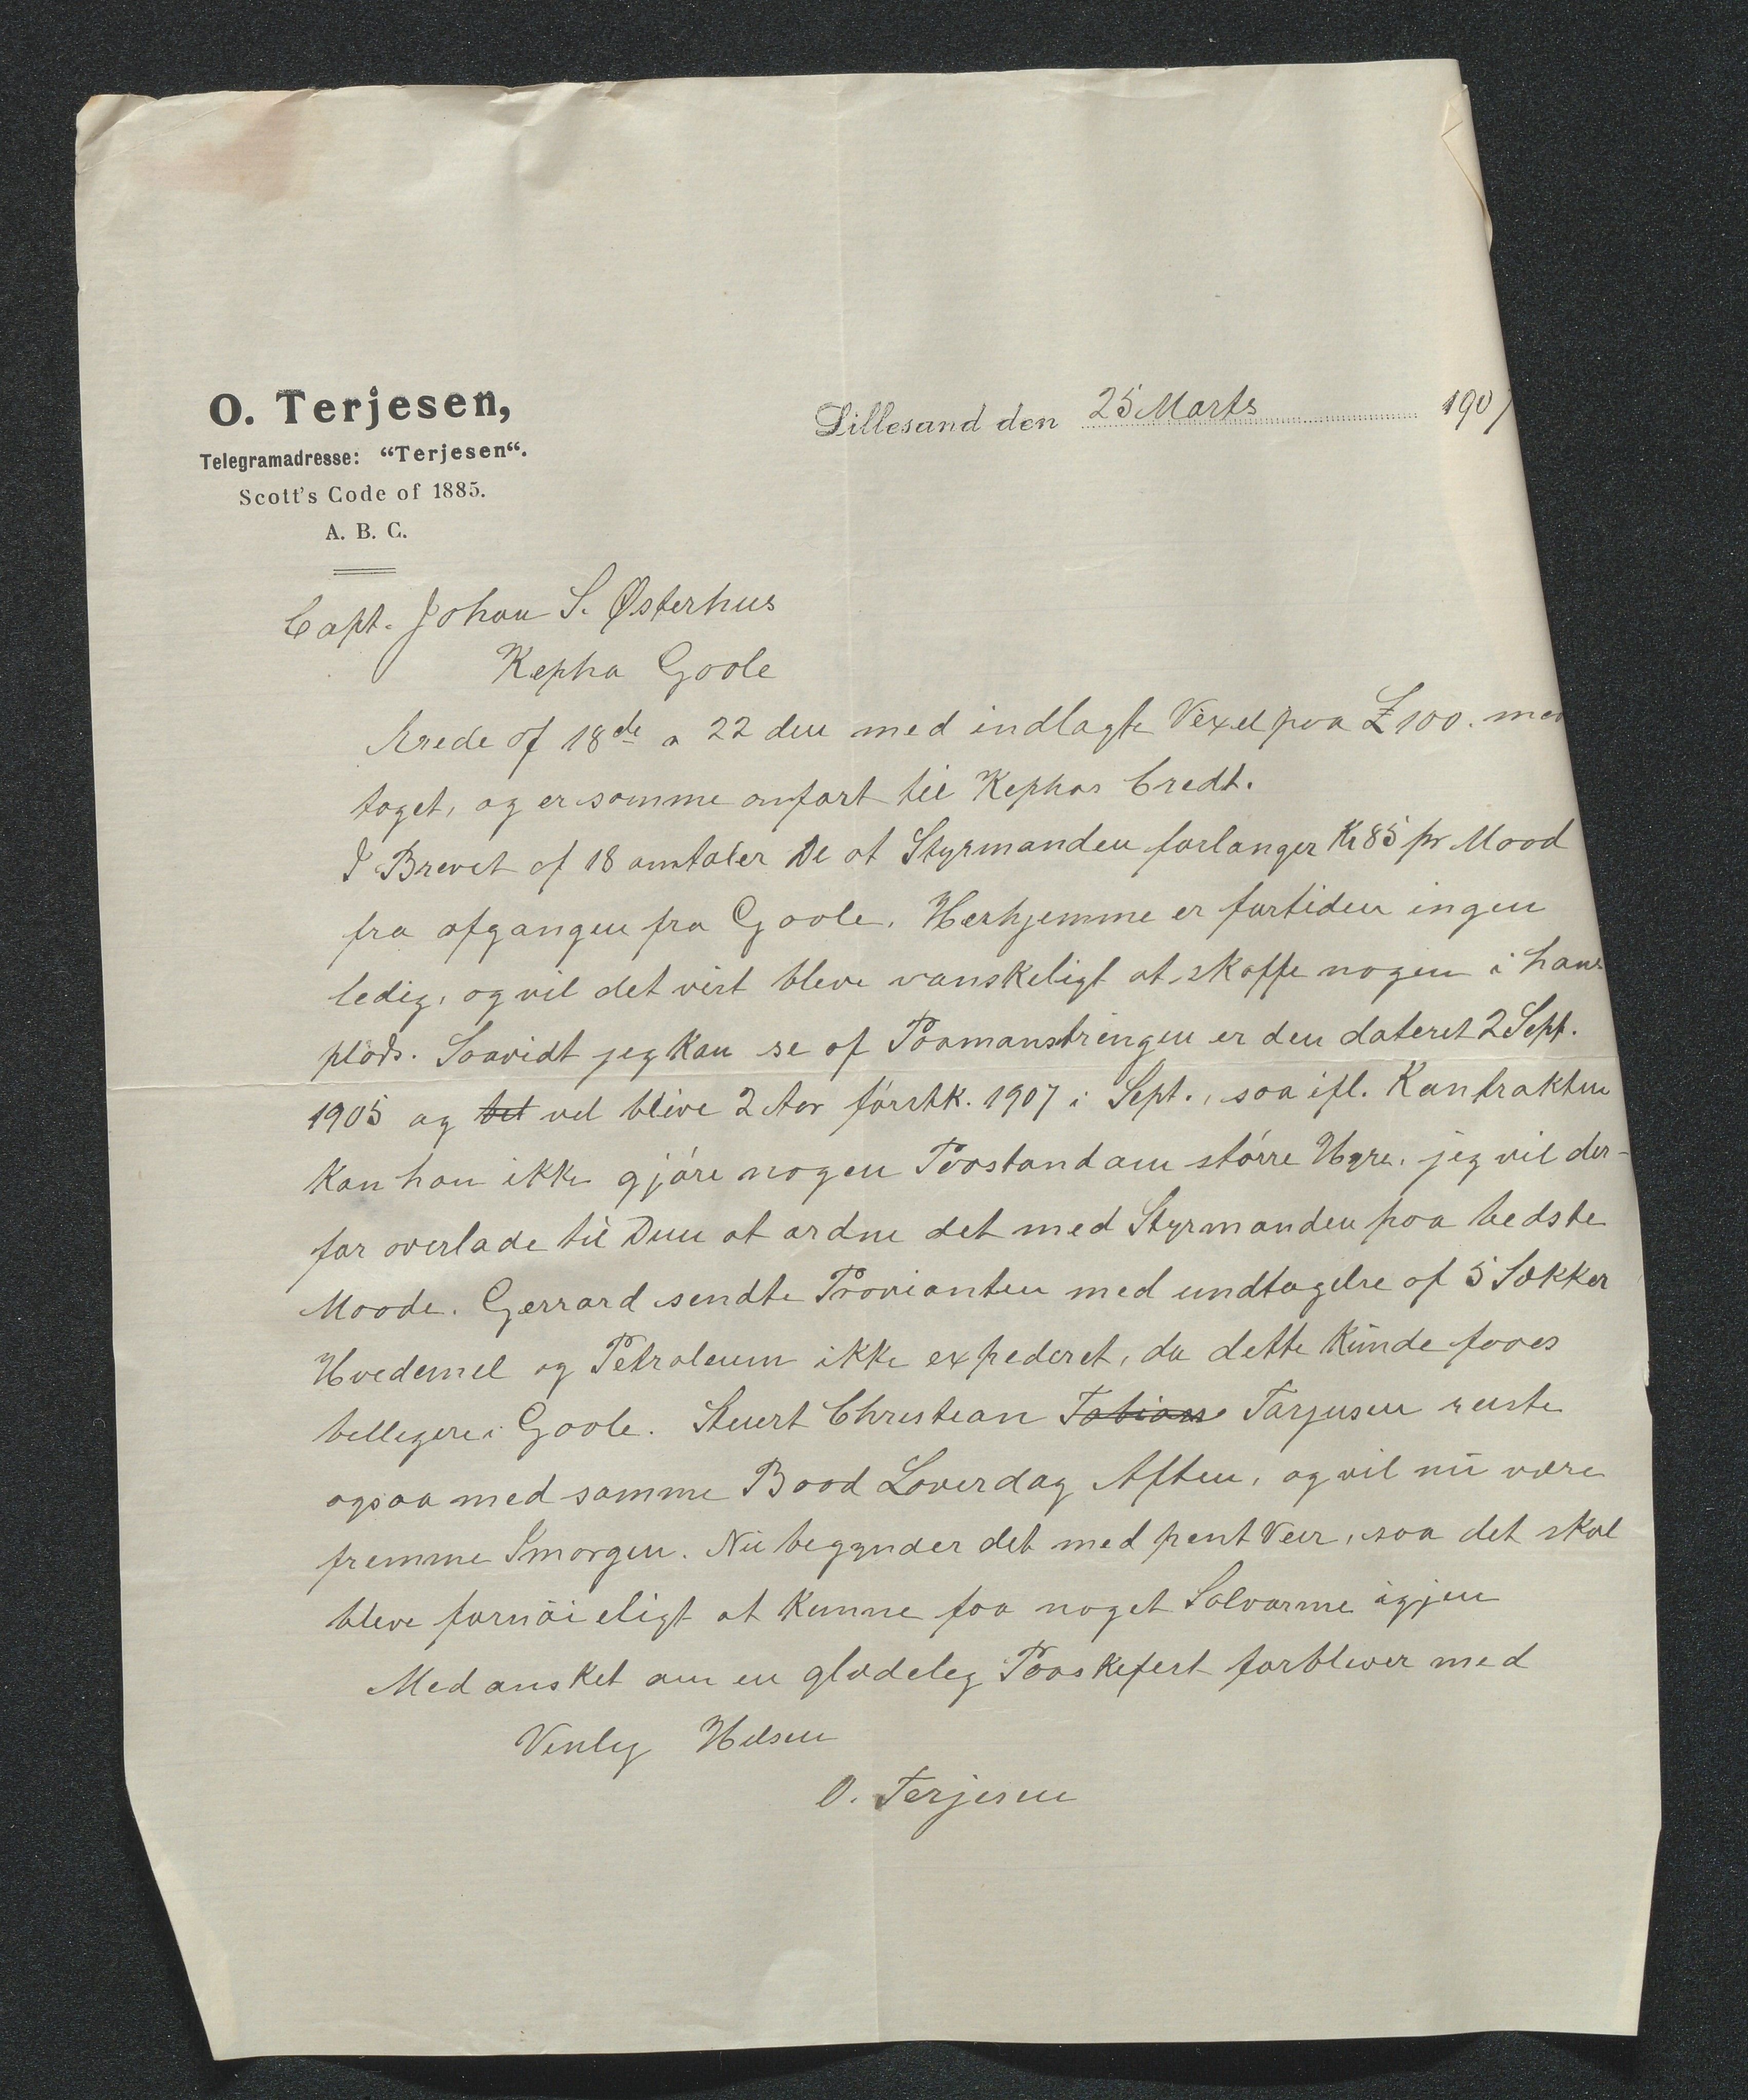 O. Terjesen,
Telegramadresse: “Terjesen“.
Scott's Code of 1885.
A. B. C.
Lillesand den 25 Marts 1907
Capt. Johan S. Østerhus
Kepha Goole
Ærede af 18de a 22 den med indlagte Vexel paa £ 100. mod
taget, og er samme anført til Kephas Credt.
I Brevet af 18 omtaler De at Styrmanden forlanger Kr 85 pr Maad
fra afgangen fra Goole. Herhjemme er fortiden ingen
ledig, og vil det vist blive vanskeligt at skaffe nogen i hans
plads. Saavidt jeg kan se af Paamønstringen er den dateret 2 Sept.
1905 og det vil blive 2 Aar førstk. 1907 i Sept., saa ifl. Kontrakten
kan han ikke gjøre nogen Paastand om større Hyre. jeg vil der-
for overlade til Dem at ordne det med Styrmanden paa bedste
Maade. Gerrard sendte Provianten med undtagelse af 5 Sækker
Hvedemel og Petroleum ikke expederet, da dette kunde faaes
billigere i Goole. Stuert Christian Tobias Tarjusen reiste
ogsaa med samme Baad Løverdag Aften, og vil nu være
fremme Imorgen. Nu begynder det med pent Veir, saa det skal
blive fornøieligt at kunne faa noget Solvarme igjen
Med ønsket om en glædelig Paaskefest forbliver med
Venlig Hilsen
O. Terjesen